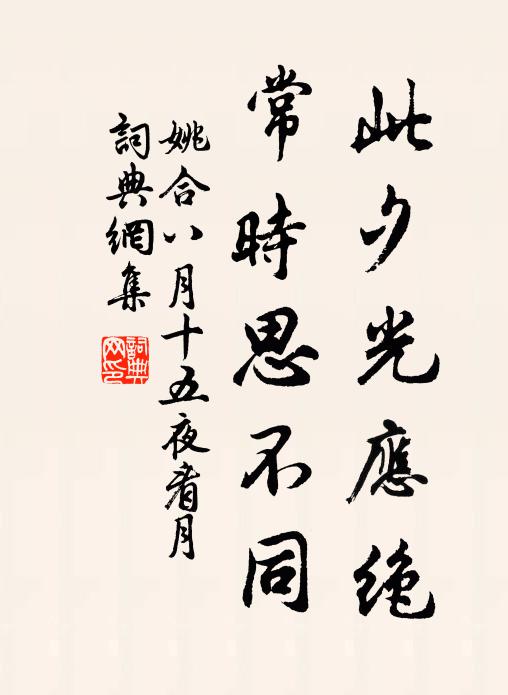 此夕光應絶
常時思不同
姚合八月十五夜看月
詞典網集
詞典網印